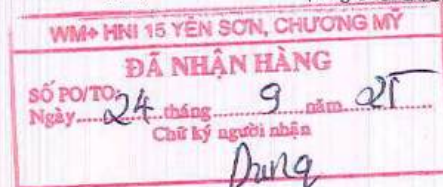 WM+ HNI 15 YÊN SƠN, CHƯƠNG MỸ
ĐÃ NHẬN HÀNG
SỐ PO/TO:
Ngày 24 tháng 9 năm 25
Chữ ký người nhận
Dung